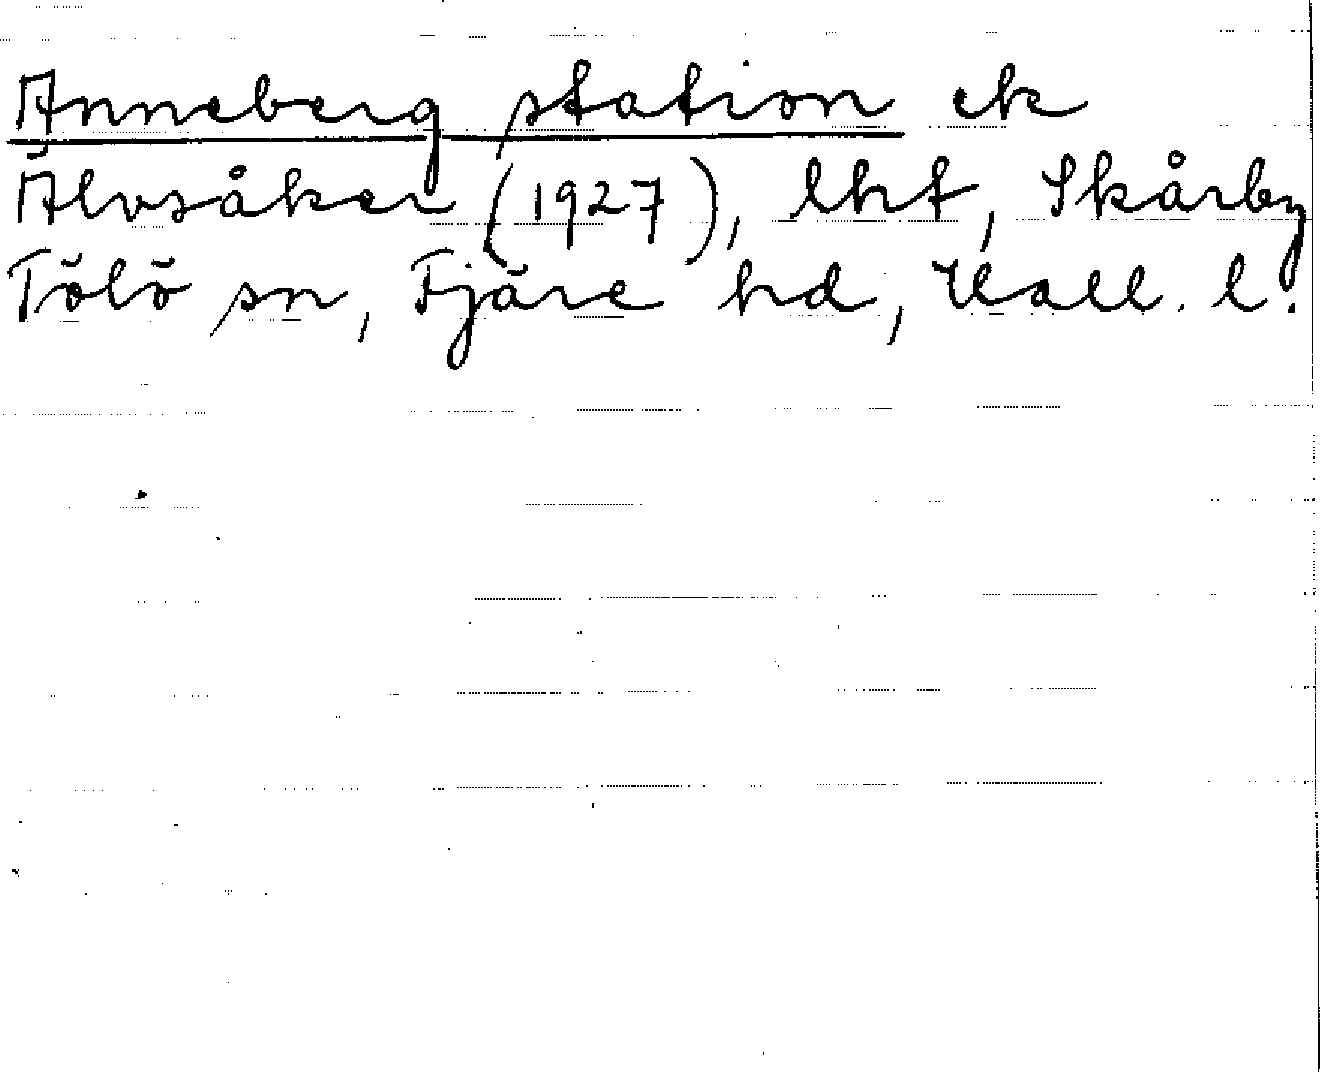 Anneberg station ek
Älvsåker (1927), lht, Skårby
Tölö sn, Fjäre hd, Hall. l.